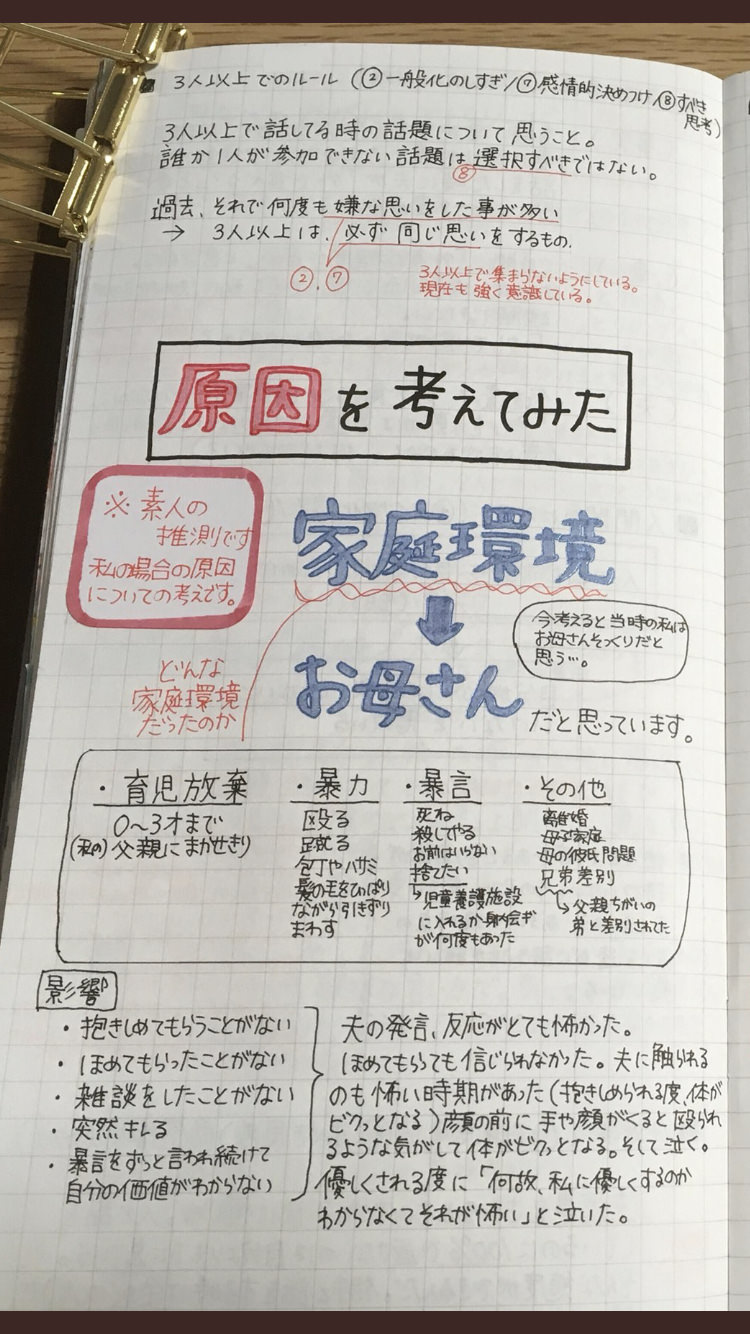 3人以上でのルール（②一般化のしすぎ/⑦感情的決めつけ/⑧すべき
思考）
3人以上で話してる時の話題について思うこと。
誰か1人が参加できない話題は選択すべきではない。
⑧
過去、それで何度も嫌な思いをした事が多い
→ 3人以上は、必ず同じ思いをするもの.
②,⑦
3人以上で集まらないようにしている。
現在も強く意識している。
原因を考えてみた
※素人の
推測です
私の場合の原因
についての考えです。
家庭環境
↓
お母さん
だと思っています。
今考えると当時の私は
お母さんそっくりだと
思う…。
どんな
家庭環境
だったのか
・育児放棄
0〜3才まで
(私の)父親にまかせきり
・暴力
殴る
蹴る
包丁やハサミ
髪の毛をひっぱり
ながら引きずり
まわす
・暴言
死ね
殺してやる
お前はいらない
捨てたい
↳児童養護施設
に入れるか
が何度もあった
・その他
離婚
母子家庭
母の彼氏問題
兄弟差別
↳父親ちがいの
弟と差別されてた
影響
・抱きしめてもらうことがない
・ほめてもらったことがない
・雑談をしたことがない
・突然キレる
・暴言をずっと言われ続けて
自分の価値がわからない
夫の発言、反応がとても怖かった。
ほめてもらっても信じられなかった。夫に触られる
のも怖い時期があった(抱きしめられる度、体が
ビクッとなる)顔の前に手や顔がくると殴られ
るような気がして体がビクッとなる。そして泣く。
優しくされる度に「何故、私に優しくするのか
わからなくてそれが怖い」と泣いた。